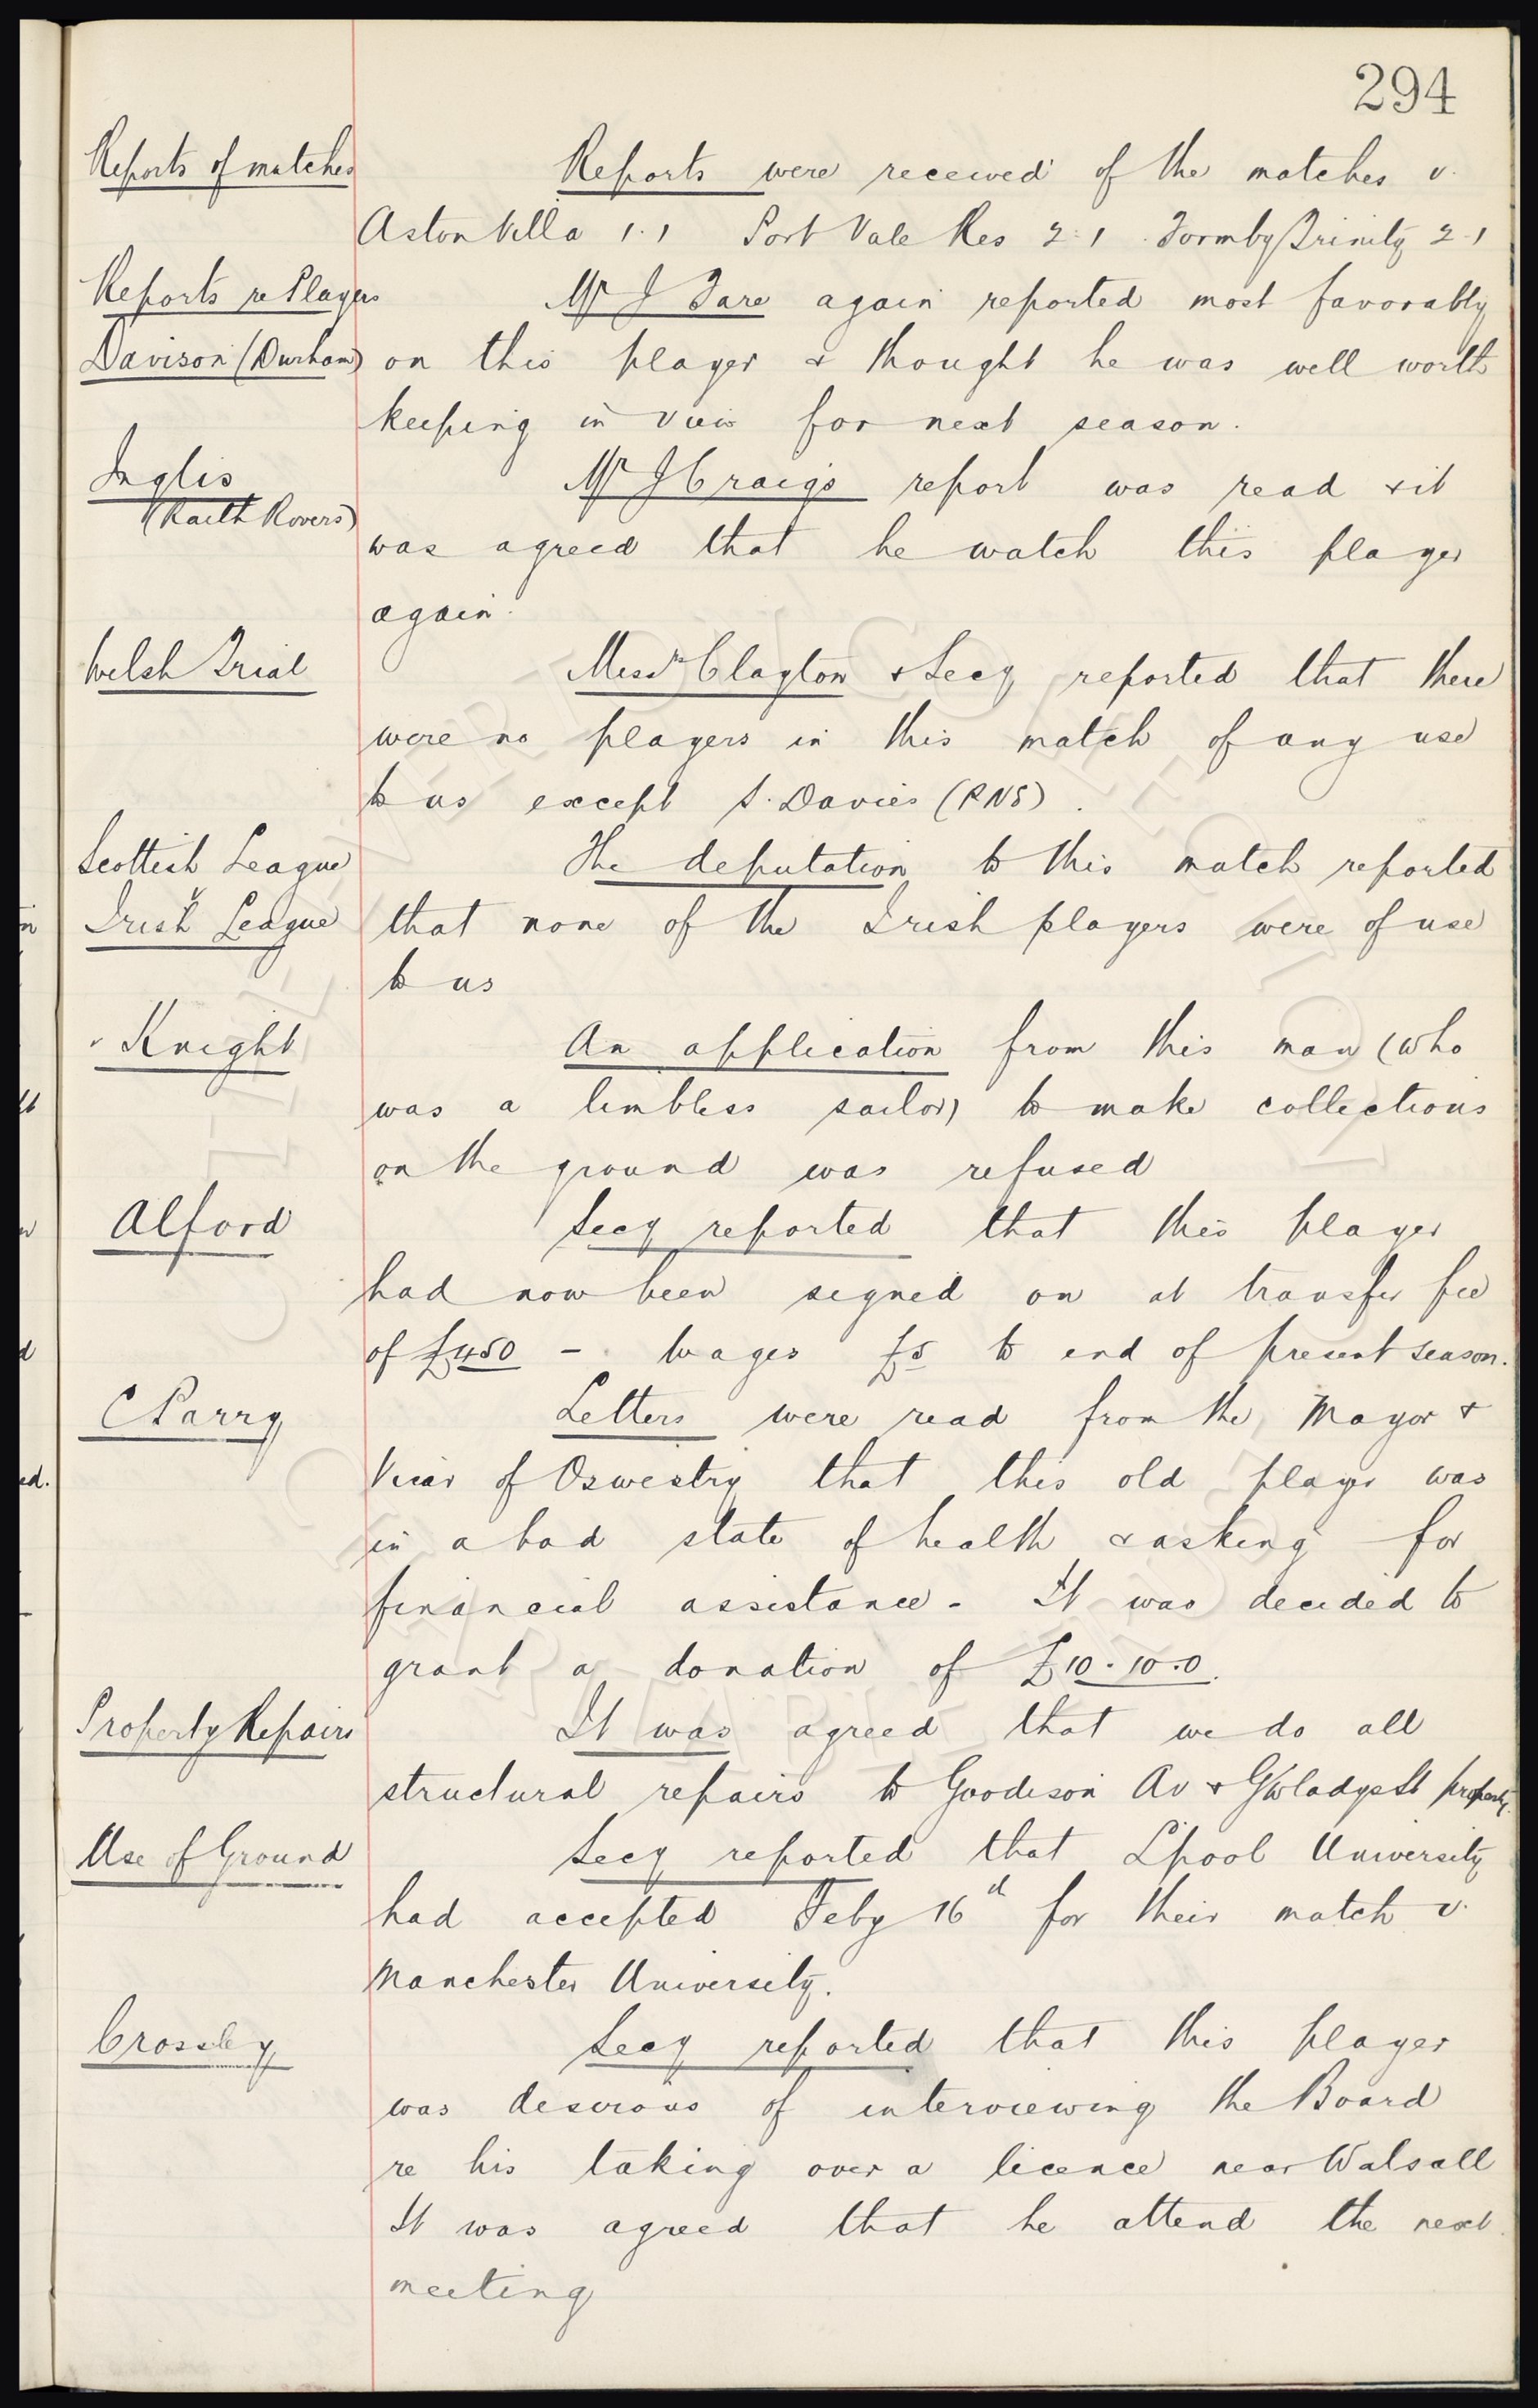 294
Reports of matches
Reports were received of the matches v.
Aston Villa 1.1 Port Vale Res 2:1 Formby Trinity 2-1
Reports re Players
Mr J Fare again reported most favorably
Davison (Durham)
on this player & thought he was well worth
keeping in view for next season.
Inglis
(Raith Rovers)
Mr J Craigs report was read & it
was agreed that he watch this player
again.
Welsh Trial
Messrs Clayton & Secy reported that there
were no players in this match of any use
to us except S. Davies (PNE).
Scottish League
v
Irish League
The deputation to this match reported
that none of the Irish players were of use
to us
Knight
An application from this man (who
was a limbless sailor) to make collections
on the ground was refused
Alford
Secy reported that this player
had now been signed on at transfer fee
of £450 - Wages £5 to end of present season.
C Parry
Letters were read from the Mayor &
Vicar of Oswestry that this old player was
in a bad state of health & asking for
financial assistance - It was decided to
grant a donation of £10.10.0.
Property Repairs
It was agreed that we do all
structural repairs to Goodison Av & Gwladys St property.
Use of Ground
Secy reported that L'pool University
had accepted Feby 16th for their match v.
Manchester University.
Crossley
Secy reported that this player
was desirous of interviewing the Board
re his taking over a licence near Walsall
It was agreed that he attend the next
meeting